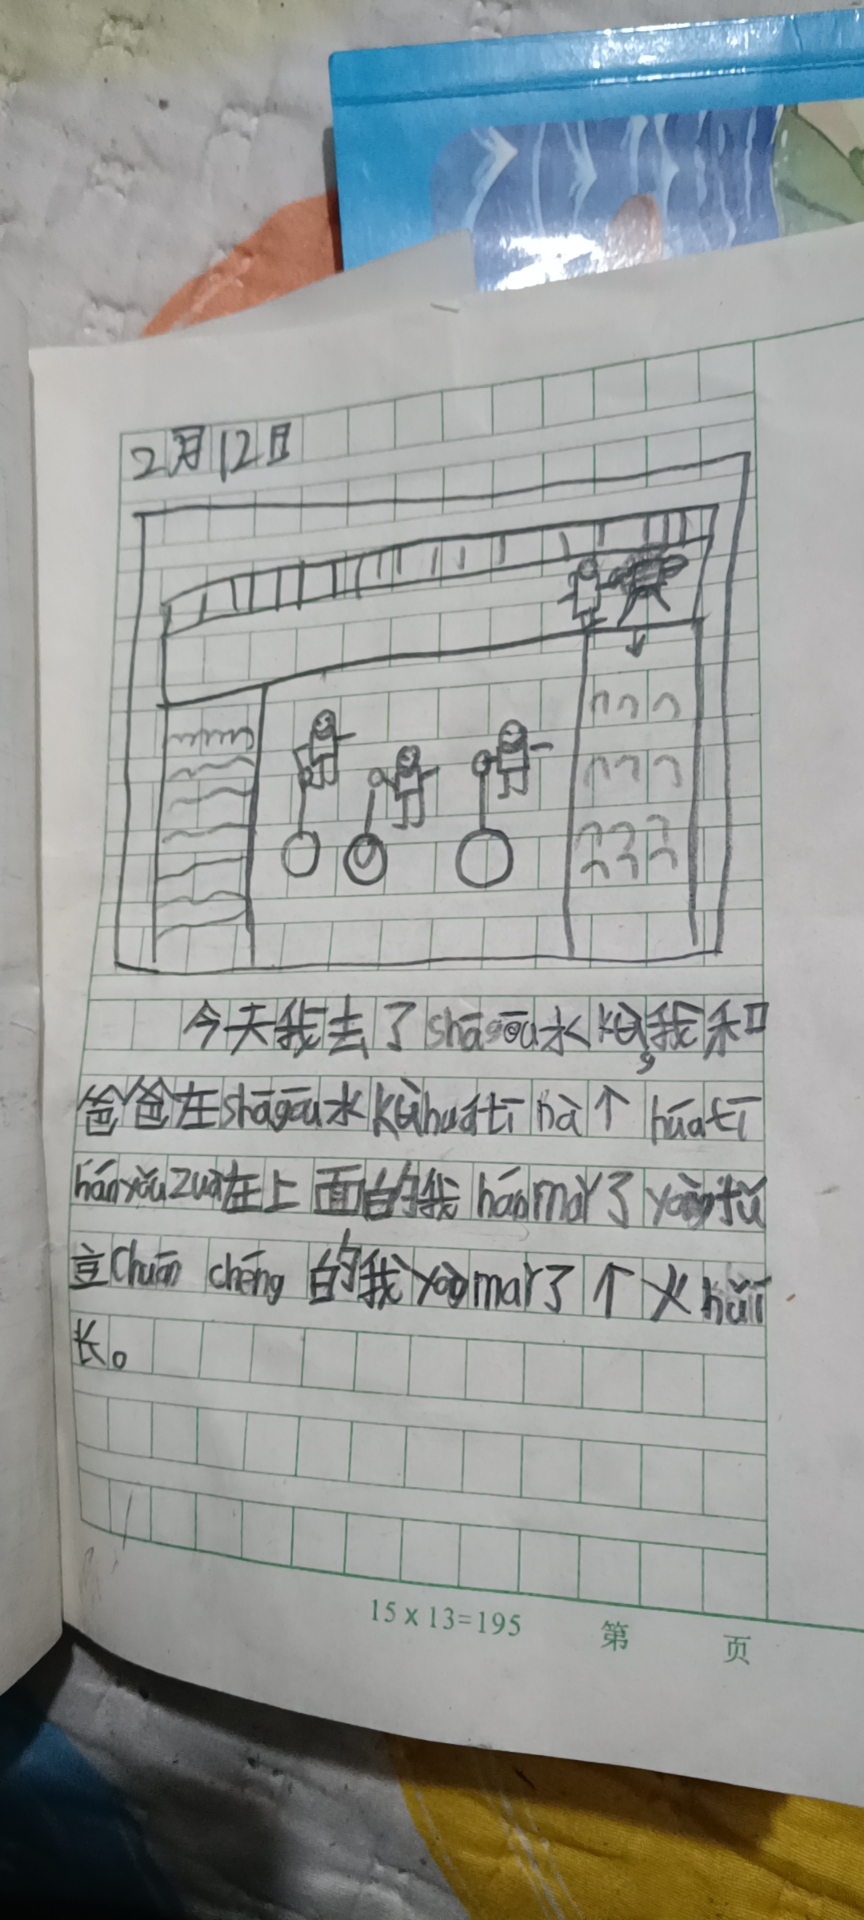 2月12日
今天我去了shāgōu水kù,我和
爸爸在shāgōu水kùhuátī nà个 huátī
hányǒuzuò在上面的我 háomǎy了yòngtǔ
立chuān chéng 的我yàomǎy了个火huǐ
长。
15×13=195 第 页